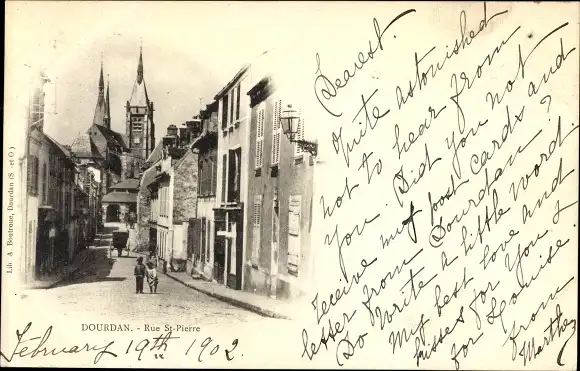 Dearest.
Quite astonished
not to hear from
you. Did you not
receive my post cards and
letter from Dourdan?
Do write a little word.
My best love and
kisses for you &
for Louise
from
Marthe
Lib A Boutroue, Dourdan (S. et O.)
DOURDAN. - Rue St-Pierre
February 19th 1902.